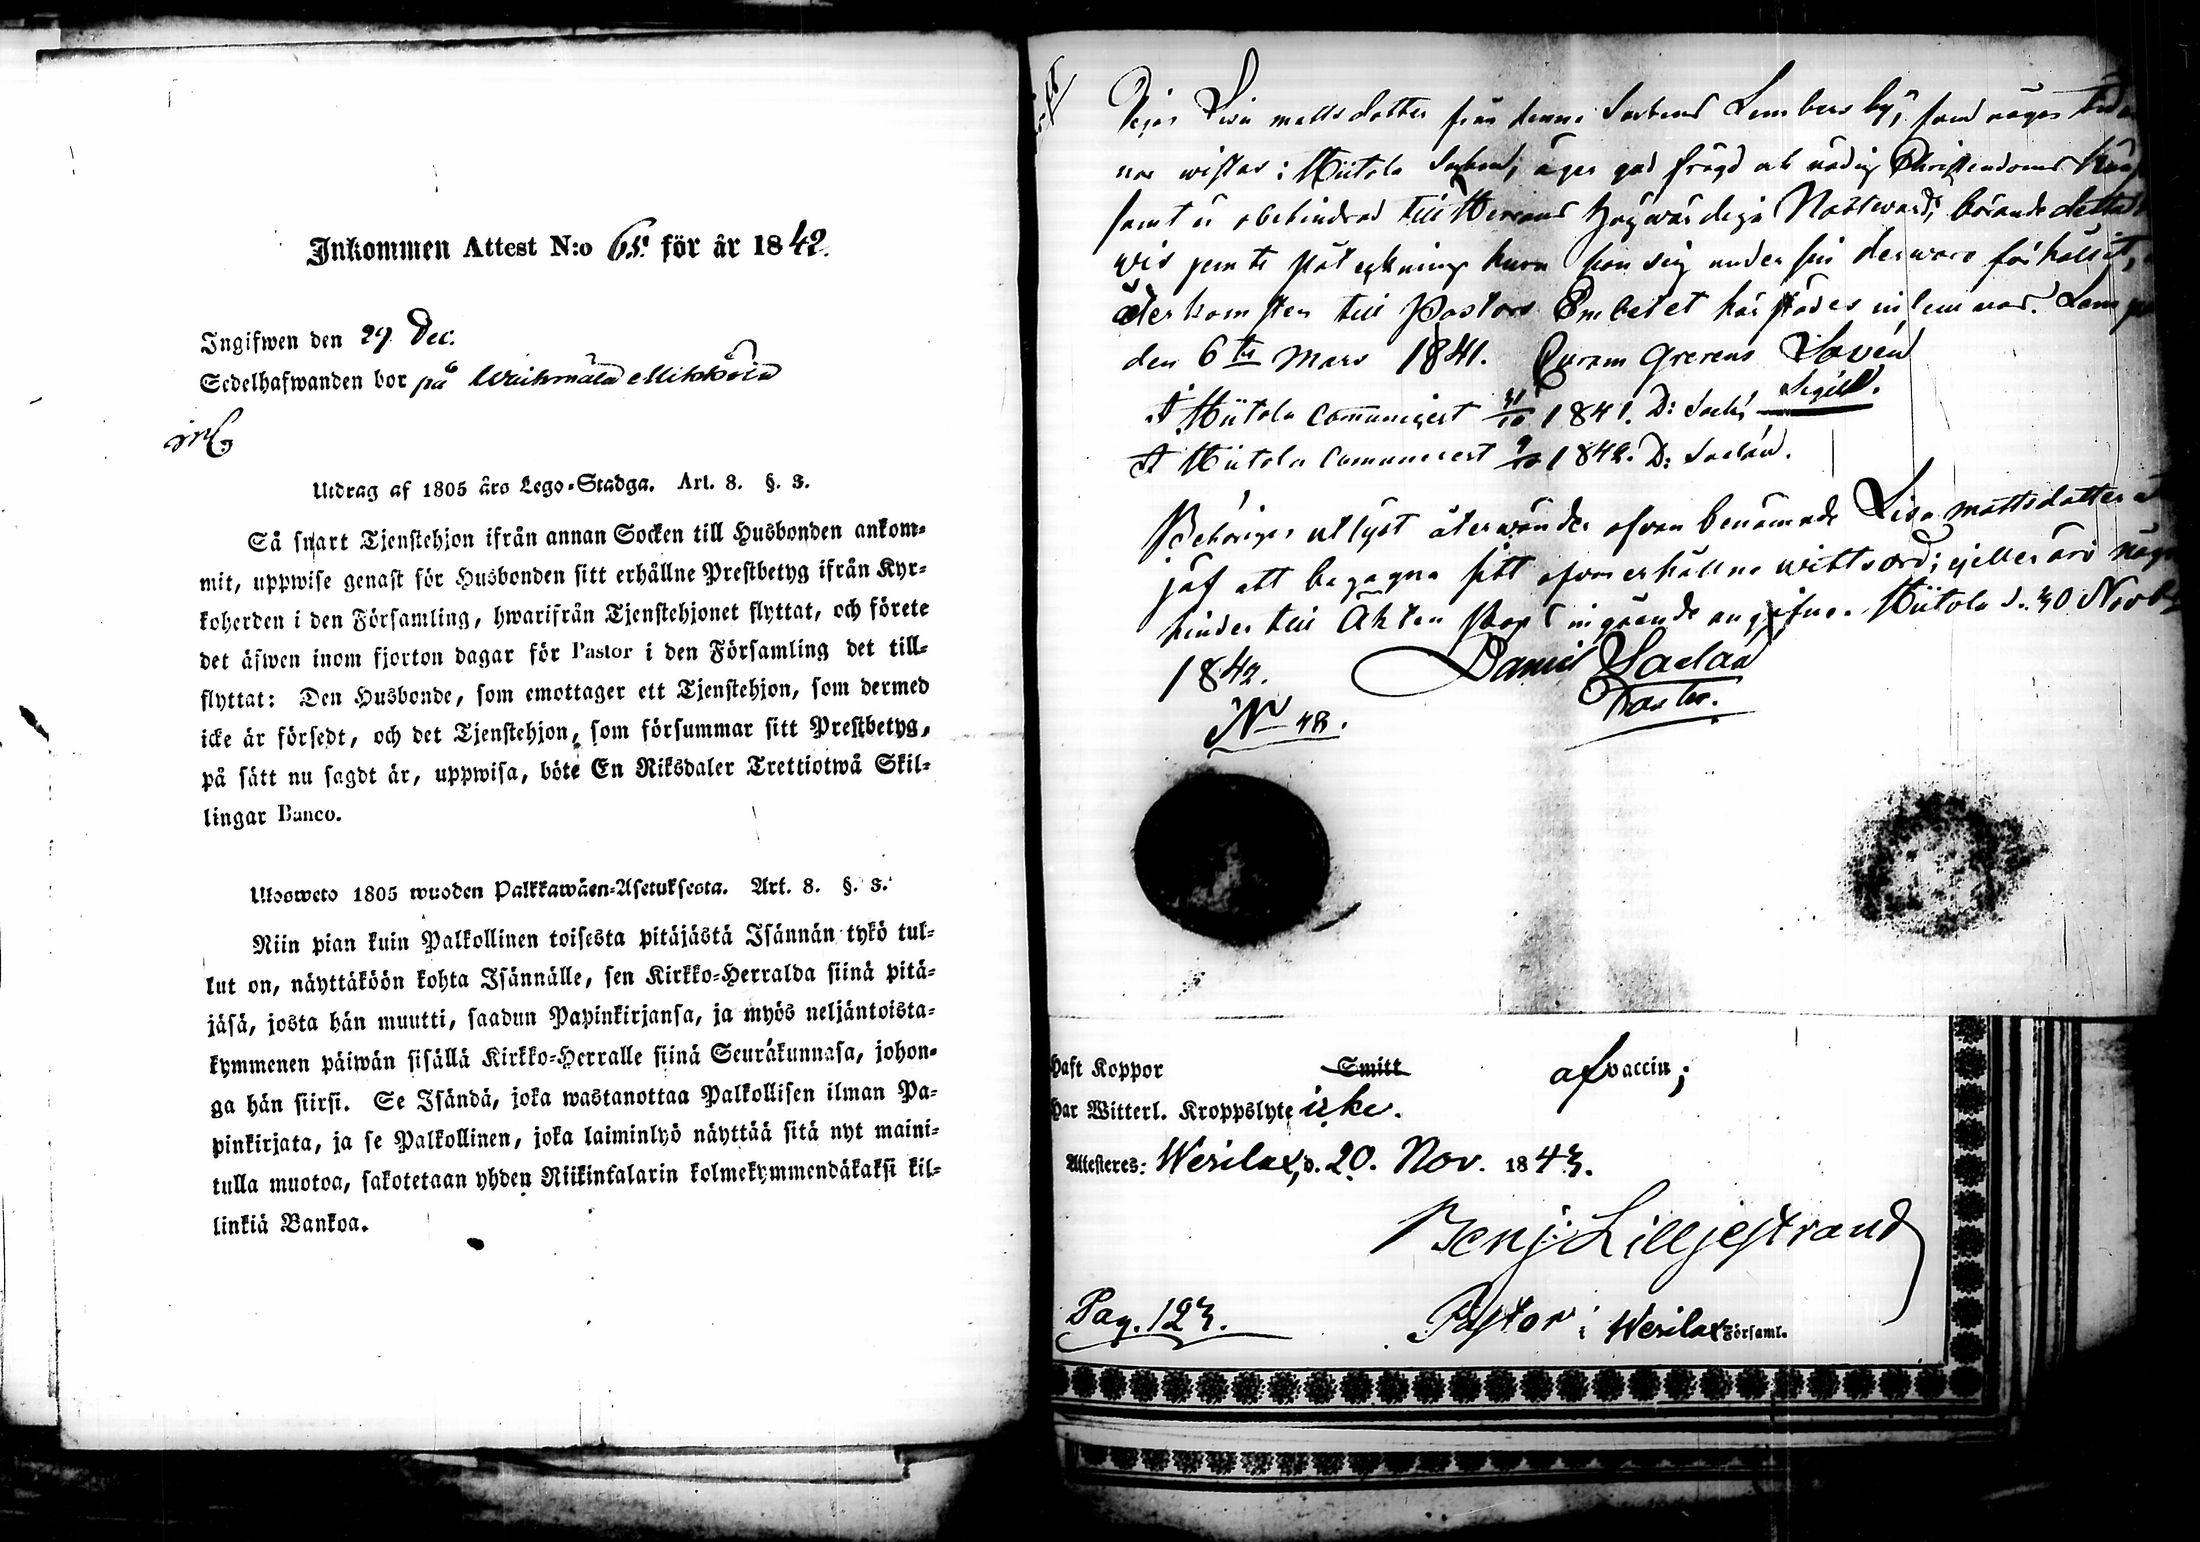 Inkommen Attest N:o 65. för år 1842.
Ingifwen den 29 Dec.
Sedelhafwanden bor på
Utdrag af 1805 års Lego-Stadga. Art. 8. §. 3.
Så snart Tjenstehjon ifrån annan Socken till Husbonden ankom-
mit, uppwise genast för Husbonden sitt erhållne Prestbetyg ifrån Kyr-
koherden i den Församling, hwarifrån Tjenstehjonet flyttat, och förete
det äfwen inom fjorton dagar för Pastor i den Församling det till-
flyttat: Den Husbonde, som emottager ett Tjenstehjon, som dermed
icke är försedt, och det Tjenstehjon, som försummar sitt Prestbetyg,
på sätt nu sagdt är, uppwisa, böte En Riksdaler Trettiotwå Skil-
lingar Banco.
Ulosweto 1805 wuoden Palkkawäen-Asetuksesta. Art. 8. §. 3.
Niin pian kuin Palkollinen toisesta pitäjästä Isännän tykö tul-
lut on, näyttäköön kohta Isännälle, sen Kirkko-Herralda siinä pitä-
jäsä, josta hän muutti, saadun Papinkirjansa, ja myös neljäntoista-
kymmenen päiwän sisällä Kirkko-Herralle siinä Seurakunnasa, johon-
ga hän siirsi. Se Isändä, joka wastanottaa Palkollisen ilman Pa-
pinkirjata, ja se Palkollinen, joka laiminlyö näyttää sitä nyt maini-
tulla muotoa, sakotetaan yhden Riikintalarin kolmekymmendäkaksi kil-
linkiä Bankoa.
Pigan Lisa mattsdotter från denna Sockens Lembers by, som någon tid
nor wistas i Hiitola Socken, äger god frägd och nödig Christendoms
samt är obehindrad till Herrans Högwärdiga Nattward;
wis jemte påteckning huru hon sig under sin derwaro förhållit,
återkomsten till Pastors Embetet härstädes inlemnad.
den 6te Mars 1841. Coram Grerens Lovén
A Hiitola Communicerat 31/10 1841. D: Sigill.
A Hiitola Communicerat 9/10 1842. D:
Behörigen utlyst återwänder ofvan benämnde Lisa mattsdotter
att begagna sitt ofvan erhållna wittsord; ejeller äro
hinder till Äkten skap ingående angifne. Hiitola d. 30
1842. Daniel
Pastor.
N 48.
Haft Koppor Smitt af vaccin;
Har Witterl. Kroppslyte icke.
Attesteres: Wesilax, d. 20. Nov. 1843.
Benj: Lilljestrand
Pag. 123. Pastor i Wesilax Församl.